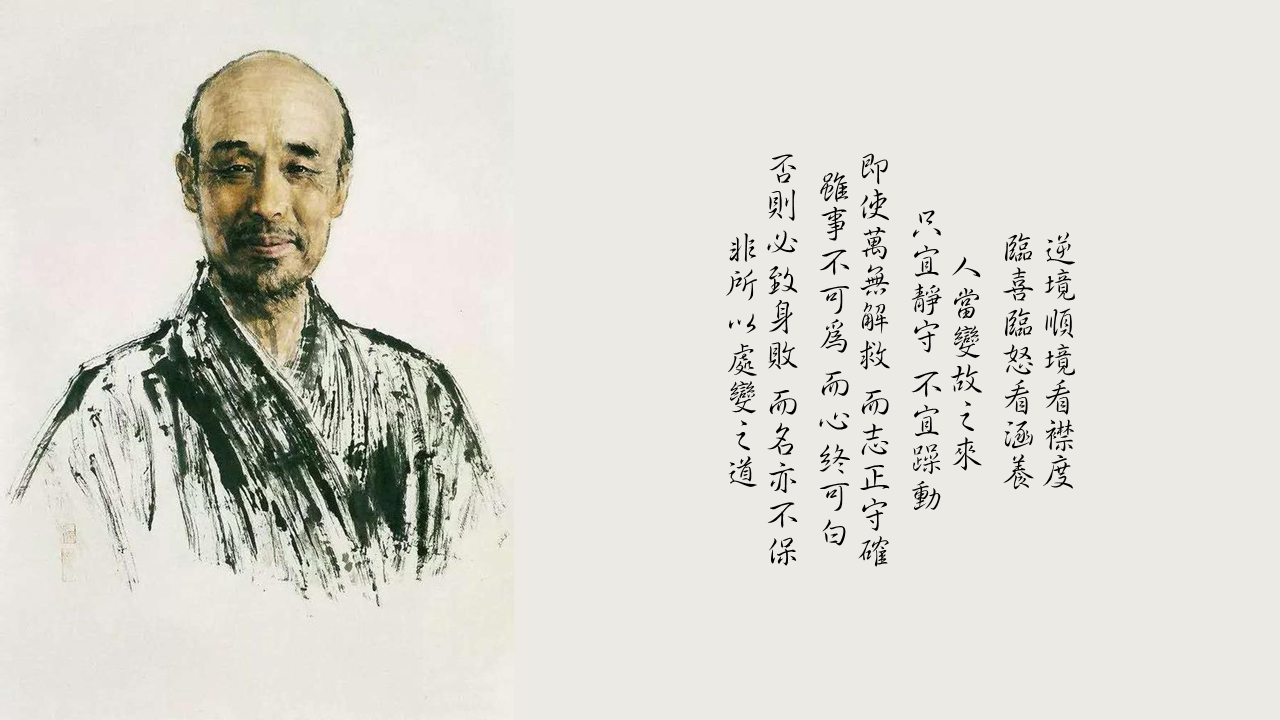 逆境順境看襟度
臨喜臨怒看涵養
人當變故之來
只宜靜守 不宜躁動
即使萬無解救 而志正守確
雖事不可為 而心終可白
否則必致身敗 而名亦不保
非所以處變之道